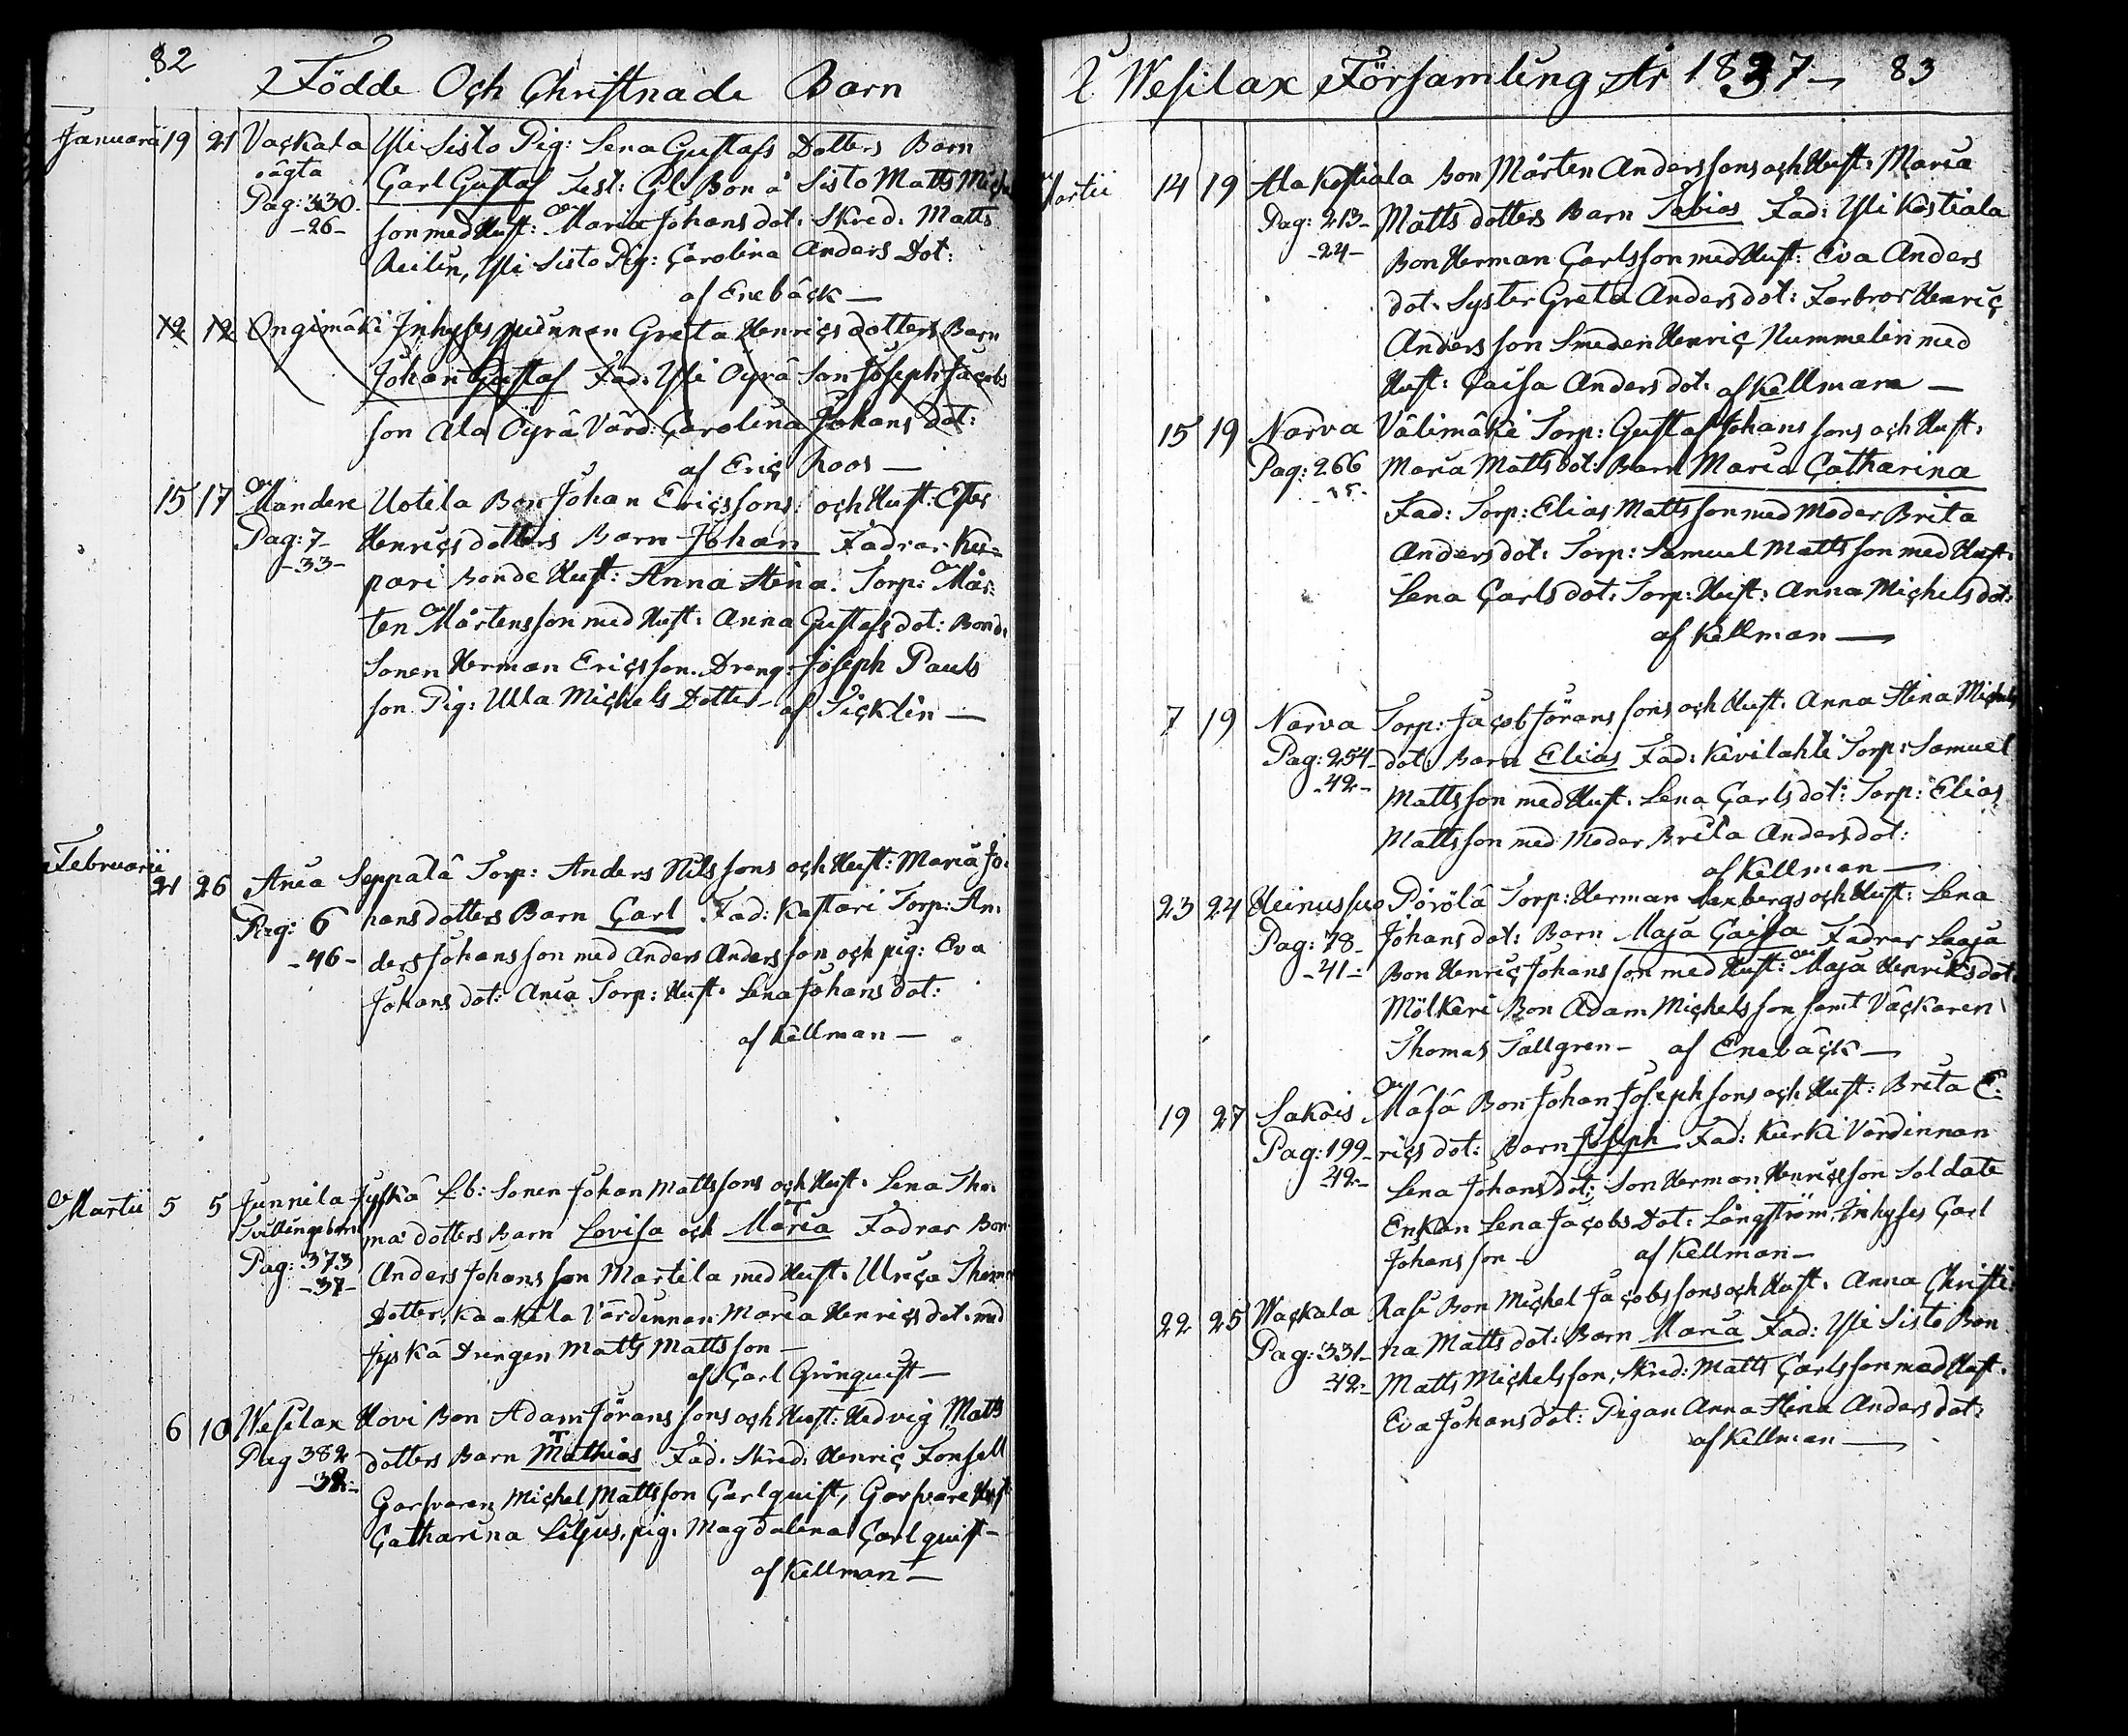 82
Födde Och Christnade Barn
Januarii 19 21 Vackala Yli Sisto Pig: Lena Gustafs Dotters Barn
oägta Carl Gustaf Test: Gl: Bon å Sisto Matts Mich
Pag: 330 son med Hust: Maria Johans dot: Skred: Matts
-26- Reilin, Yli Sisto Pig: Carolina Anders Dot:
af Enebäck —
12 12 Ongimäki Inhyses quinnan Greta Henrics dotters Barn
Johan Gustaf Fad: Yli Öyrä Son Joseph Jacobs
son Ala Öyrä Värd: Carolina Johans dot:
af Eric Roos —
15 17 Mandere Uotila Bon Johan Ericssons och Hust: Ester
Pag: 7- Henrics dotters Barn Johan Fadrar Ku-
-33- pari Bonde Hust: Anna Stina. Torp: Mår-
ten Mårtensson med Hust: Anna Gustafs dot: Bond:
Sonen Herman Ericsson. Dreng: Joseph Pauls
son Pig: Ulla Michels Dotter — af Ticklén —
Februarii
21 26 Ania Seppälä Torp: Anders Nilssons och Hust: Maria Jo-
Pag: 6 hans dotters Barn Carl Fad: Kastari Torp: An-
-46- ders Johansson med Anders Andersson och pig: Eva
Johans dot: Ania Torp: Hust: Lena Johans dot:
af Kellman —
Martii 5 5 Junnila Jyskä Lb: Sonen Johan Mattssons och Hust: Lena Tho-
Tvillingebarn ma dotters Barn Lovisa och Maria Fadrar Bon
Pag: 373 Anders Johansson Martila med Hust: Ulrica Thoma
-37- Dotter, Kaakila Värdinnan Maria Henrics dot: med
Jyskä Drengen Matts Mattsson —
af Carl Grönquist —
6 10 Wesilax Hovi Bon Adam Göranssons och Hust: Hedvig Matts
Pag 382 dotters Barn Mathias Fad: Skred: Henric Fonsell
-38- Garfvaren Michel Mattsson Carlquist, Garfvare Hust
Catharina Liljus, pig: Magdalena Carlquist —
af Kellman —
I Wesilax Församling År 1837 — 83
Martii 14 19 Ala Kostiala Bon Mårten Anderssons och Hust: Maria
Pag: 213- Matts dotters Barn Tobias Fad: Yli Kostiala
-24- Bon Herman Carlsson med Hust: Eva Anders
dot: Syster Greta Anders dot: Farbror Henric
Andersson Smeden Henric Nummelin med
Hust: Caisa Anders dot: af Kellman —
15 19 Narva Välimäki Torp: Gustaf Johanssons och Hust:
Pag: 266 Maria Matts dot: Barn Maria Catharina
Fad: Torp: Elias Mattsson med Moder Brita
Anders dot: Torp: Samuel Mattsson med Hust:
Lena Carls dot: Torp: Hust: Anna Michels dot:
af Kellman —
7 19 Narva Torp: Jacob Göranssons och Hust: Anna Stina Michels
Pag: 254- dot: Barn Elias Fad: Kivilahti Torp: Samuel
-42- Mattsson med Hust: Lena Carls dot: Torp: Elias
Mattsson med Moder Brita Anders dot:
af Kellman —
23 24 Heinussuo Pörölä Torp: Herman Laxbergs och Hust: Lena
Pag: 78- Johans dot: Barn Maja Caisa Fadrar Laaja
-41- Bon Henric Johansson med Hust: Maja Henriks dot:
Mölkeri Bon Adam Michelsson samt Väckaren
Thomas Tallgren — af Enebäck —
19 27 Sakois Mäsä Bon Johan Josephsons och Hust: Brita E-
Pag: 199- rics dot: Barn Joseph Fad: Kurki Värdinnan
-42- Lena Johans dot: Son Herman Henricsson Soldate
Enkan Lena Jacobs Dot: Långström, Inhyses Carl
Johansson — af Kellman —
22 25 Wackala Rasi Bon Michel Jacobssons och Hust: Anna Christi
Pag: 331- na Matts dot: Barn Maria Fad: Yli Sisto Bon
-42- Matts Michelsson, Skred: Matts Carlsson med Hust:
Eva Johans dot: Pigan Anna Stina Anders dot:
af Kellman —